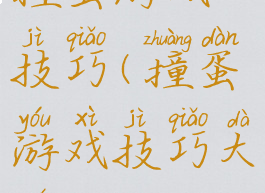 jì qiǎo zhuàng dàn
技巧(撞蛋
yóu xì jì qiǎo dà
游戏技巧大